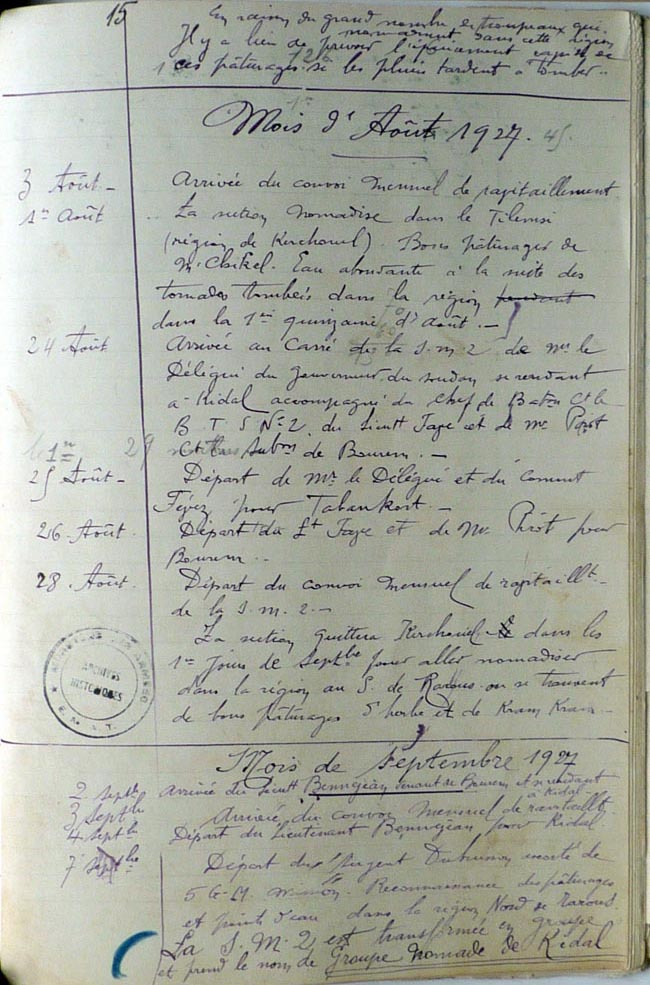 15
En raison du grand nombre de troupeaux qui
nomadisent dans cette région
Il y a lieu de prévoir l'épuisement rapide de
ces pâturages si les pluies tardent à tomber..
Mois d'Août 1927. 45
3 Août - Arrivée du convoi mensuel de ravitaillement
1er Août .. La section nomadise dans le Tilemsi
(région de Kerchouel). Bons pâturages de
Eau abondante à la suite des
tornades tombées dans la région pendant
dans la 1ère quinzaine d'Août. -
24 Août Arrivée au Carré de la S.M.2 de Mr le
Délégué du Gouverneur du Soudan se rendant
à Kidal accompagné du Chef de Baton Ct le
B T S No 2 du Lieutt Faye et de Mr Pirot
le 1er 29 Ct Subon de Bourem. -
25 Août - Départ de Mr le Délégué et du Commt
pour Tabankort. -
26 Août. Départ du Lt Faye et de Mr Pirot pour
Bourem ..
28 Août. Départ du convoi mensuel de ravitaillt
de la S.M.2. -
La section quittera Kerchouel dans les
1er jours de Septbre pour aller nomadiser
dans la région au S. de Rarous où se trouvent
de bons pâturages d'herbe et de Kram Kram -
ARCHIVES
HISTORIQUES
Mois de Septembre 1927
2 septbre Arrivée du Lieutt Bennejean venant de Bourem et se rendant
à Kidal.
3 septbre Arrivée du convoi mensuel de ravitaillt
4 septbre Départ du Lieutenant Bennejean pour Kidal.
7 Septbre Départ du Sergent escorté de
5 G.M. mission. Reconnaissance des pâturages
et point d'eau dans la région Nord de Rarous.
La S.M.2 est transformée en groupe
et prend le nom de Groupe Nomade de Kidal